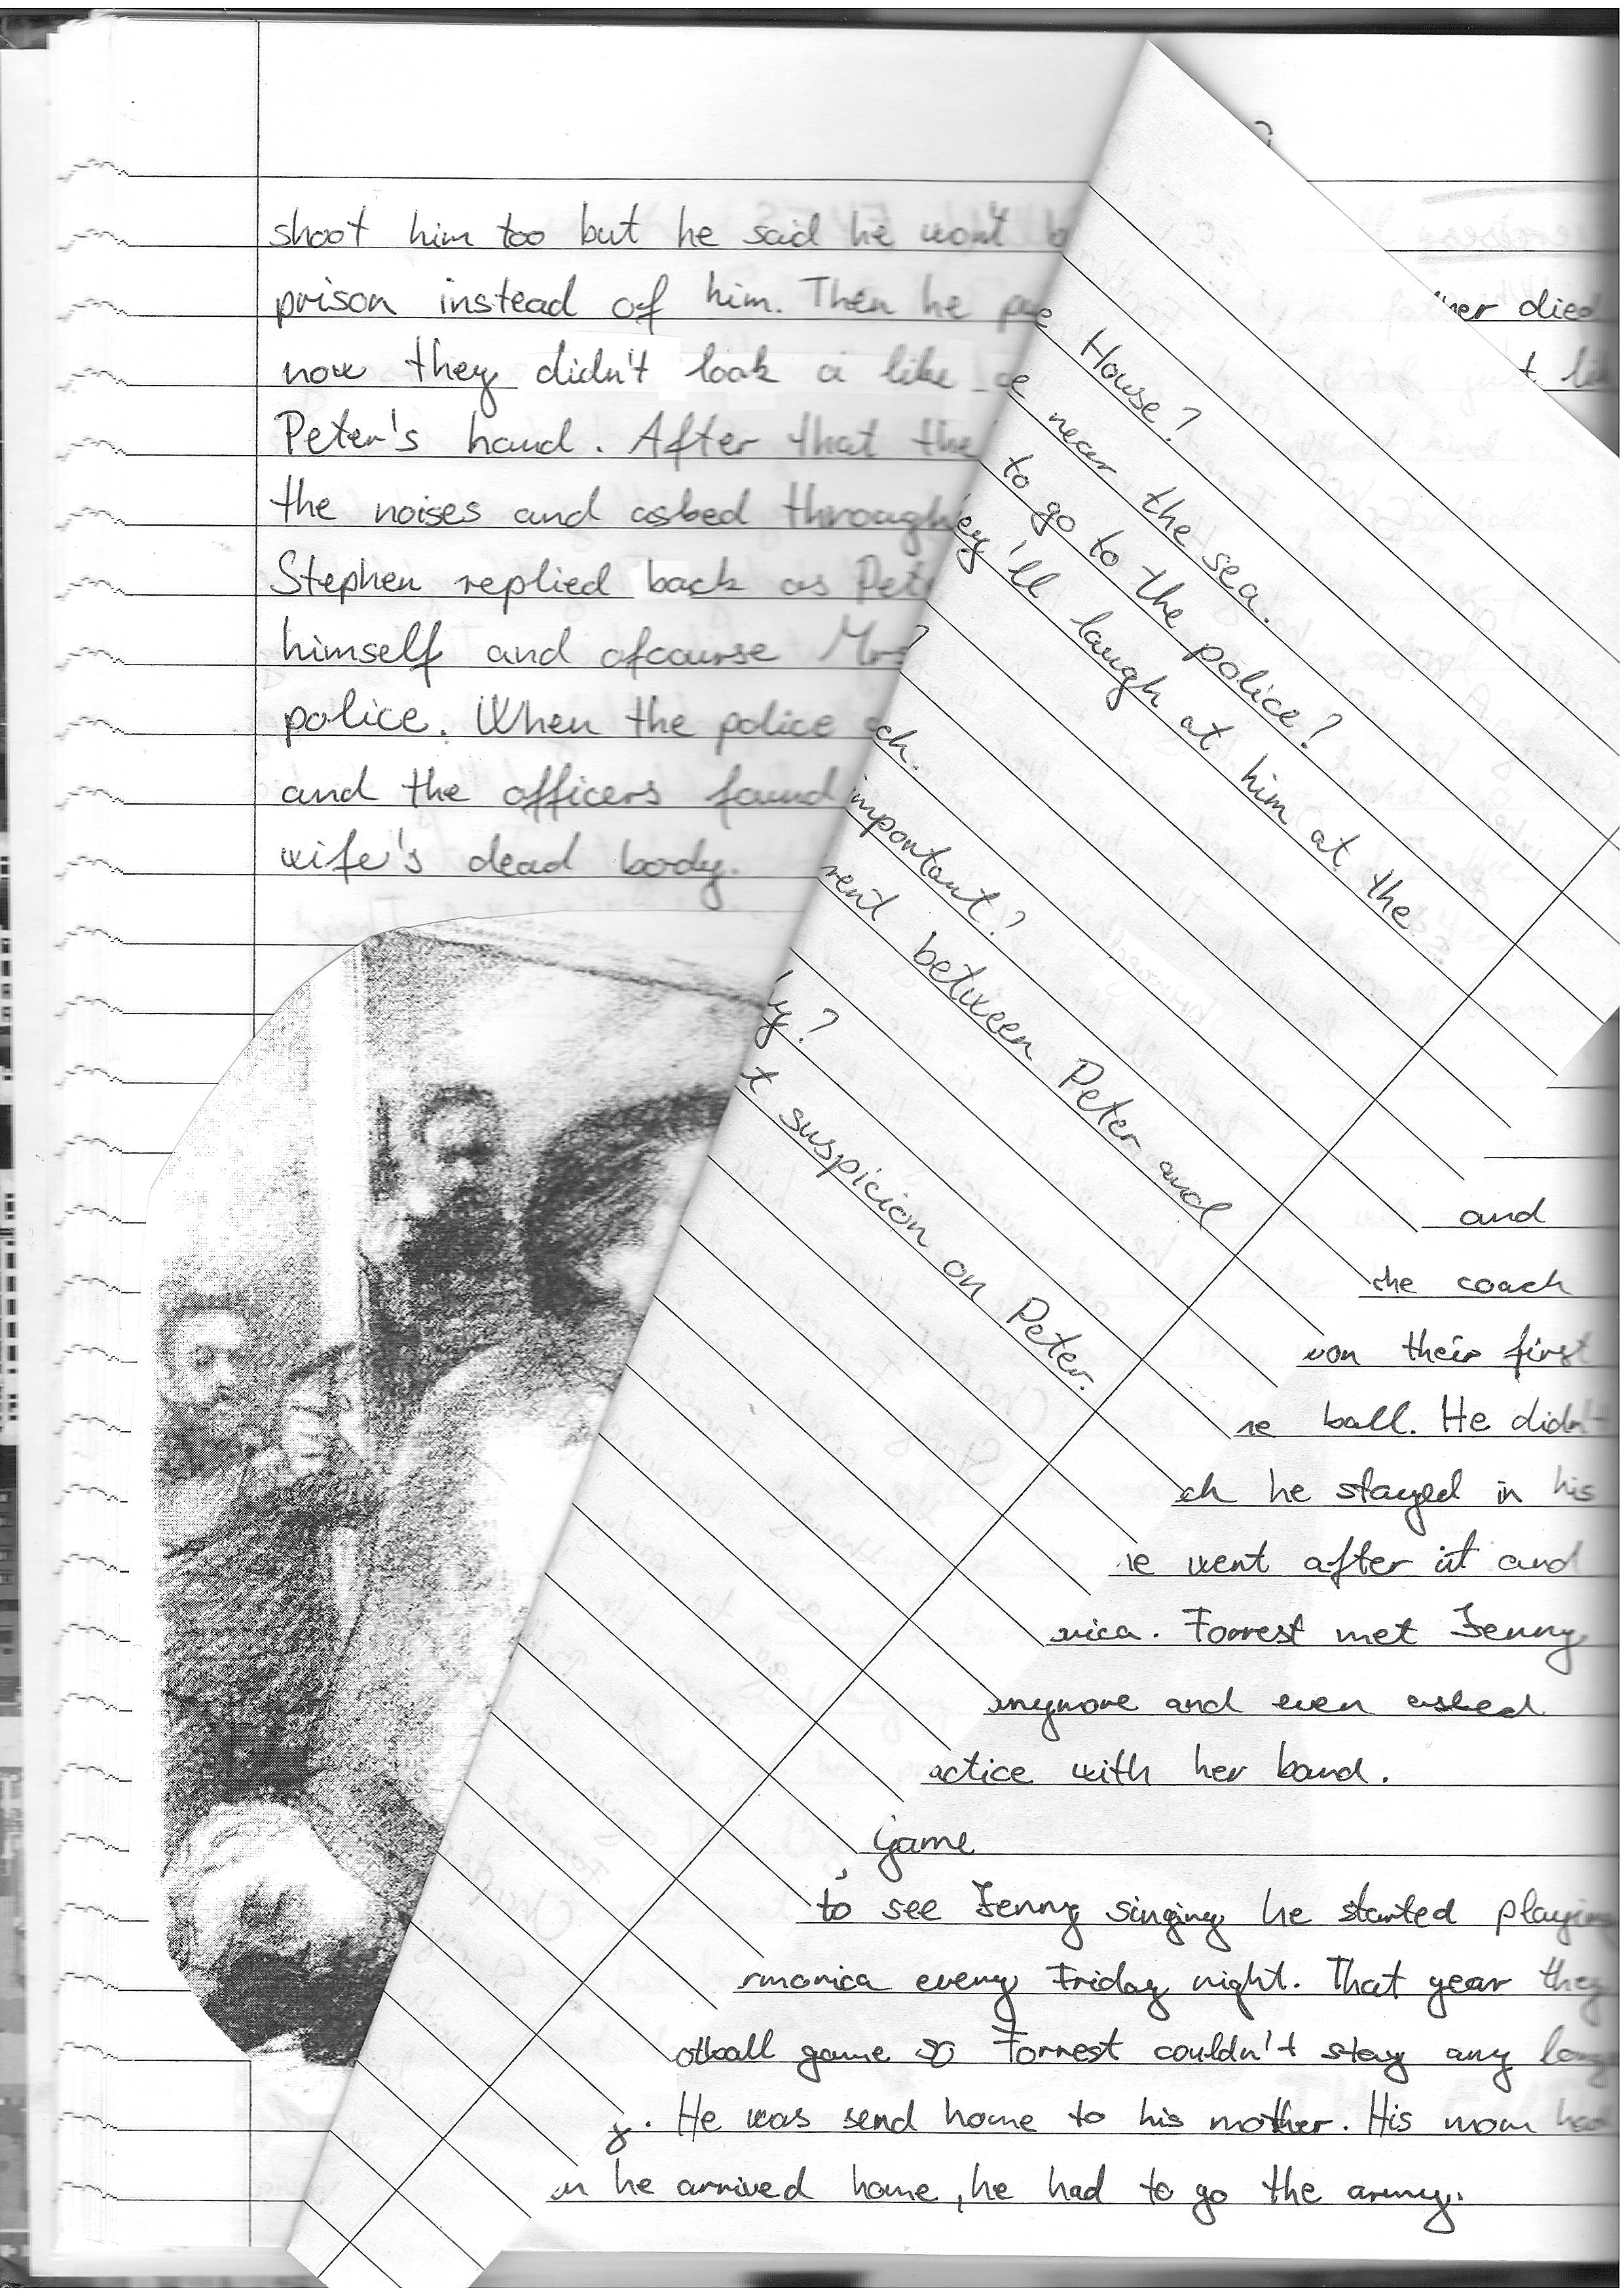 shoot him too but he said he won't
prison instead of him. Then he
now they didn't look a like
Peter's hand. After that the
the noises and asked through
Stephen replied back as Pet
himself and ofcourse Mrs
police. When the police
and the officers found
wife's dead body.
e House?
near the sea.
to go to the police?
ey'll laugh at him at the
ch.
important?
rent between Peter and
y?
t suspicion on Peter.
her died
t li
and
the coach
won their first
ne ball. He didn't
ch he stayed in his
he went after it and
nica. Forrest met Jenny
anymore and even asked
actice with her band.
game
to see Jenny singing he started playing
rmonica every Friday night. That year they
otball game so Forrest couldn't stay any long
y. He was send home to his mother. His mom had
en he arrived home, he had to go the army.